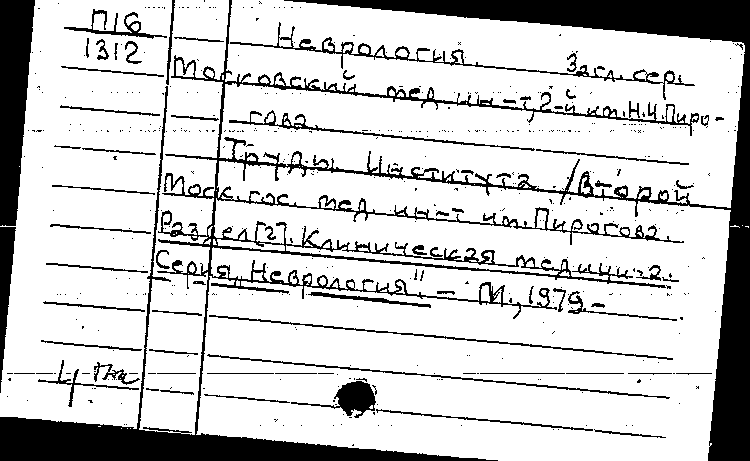 П16
1312
Неврология. Загл. сер.
Московский мед. ин-т, 2-й им. Н.И. Пиро-
гова.
Труды Института / Второй
Моск. гос. мед. ин-т им. Пирогова.
Раздел [2]. Клиническая медицина.
Серия „Неврология". — М., 1979. –
4